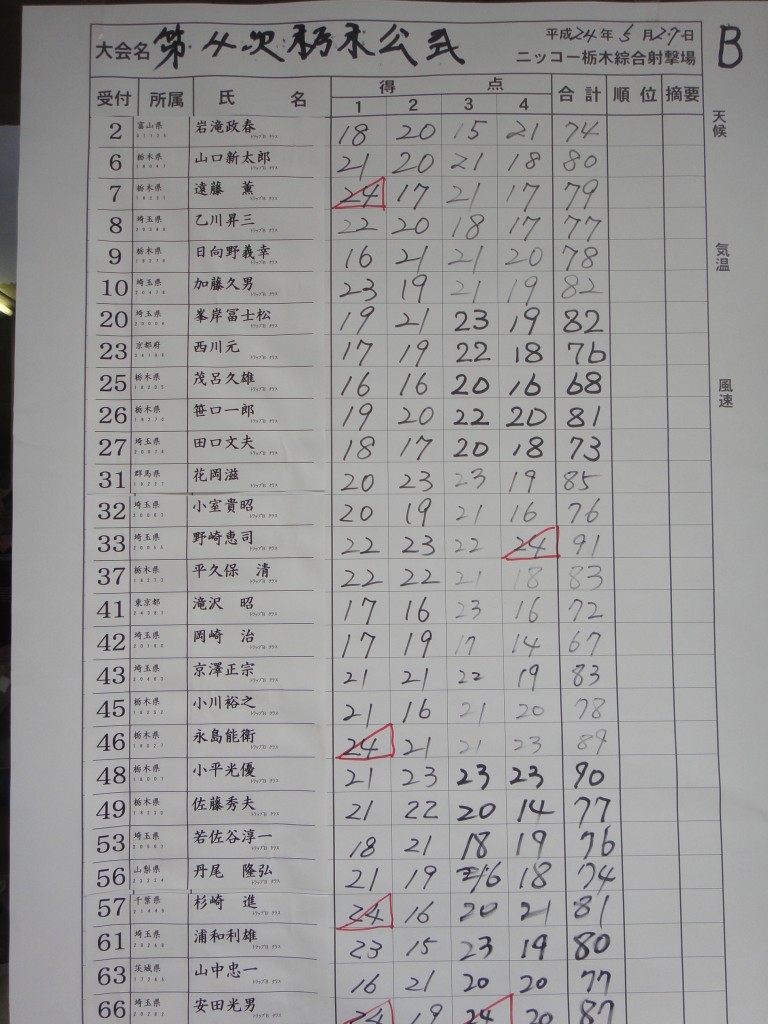 大会名 第4次栃木公式
平成24年5月27日
ニッコー栃木綜合射撃場
B
受付 所属 氏名 得点 合計 順位 摘要
1 2 3 4
天候
気温
風速
2 富山県 岩滝政春 18 20 15 21 74
6 栃木県 山口新太郎 21 20 21 18 80
7 栃木県 遠藤 薫 24 17 21 17 79
8 埼玉県 乙川昇三 22 20 18 17 77
9 栃木県 日向野義幸 16 21 21 20 78
10 埼玉県 加藤久男 23 19 21 19 82
20 埼玉県 峯岸冨士松 19 21 23 19 82
23 京都府 西川元 17 19 22 18 76
25 栃木県 茂呂久雄 16 16 20 16 68
26 栃木県 笹口一郎 19 20 22 20 81
27 埼玉県 田口文夫 18 17 20 18 73
31 群馬県 花岡滋 20 23 23 19 85
32 埼玉県 小室貴昭 20 19 21 16 76
33 埼玉県 野崎恵司 22 23 22 24 91
37 栃木県 平久保 清 22 22 21 18 83
41 東京都 滝沢 昭 17 16 23 16 72
42 埼玉県 岡崎 治 17 19 17 14 67
43 埼玉県 京澤正宗 21 21 22 19 83
45 栃木県 小川裕之 21 16 21 20 78
46 栃木県 永島能衛 24 21 21 23 89
48 栃木県 小平光優 21 23 23 23 90
49 栃木県 佐藤秀夫 21 22 20 14 77
53 埼玉県 若佐谷淳一 18 21 18 19 76
56 山梨県 丹尾 隆弘 21 19 16 18 74
57 千葉県 杉崎 進 24 16 20 21 81
61 埼玉県 浦和利雄 23 15 23 19 80
63 茨城県 山中忠一 16 21 20 20 77
66 埼玉県 安田光男 24 19 24 20 87